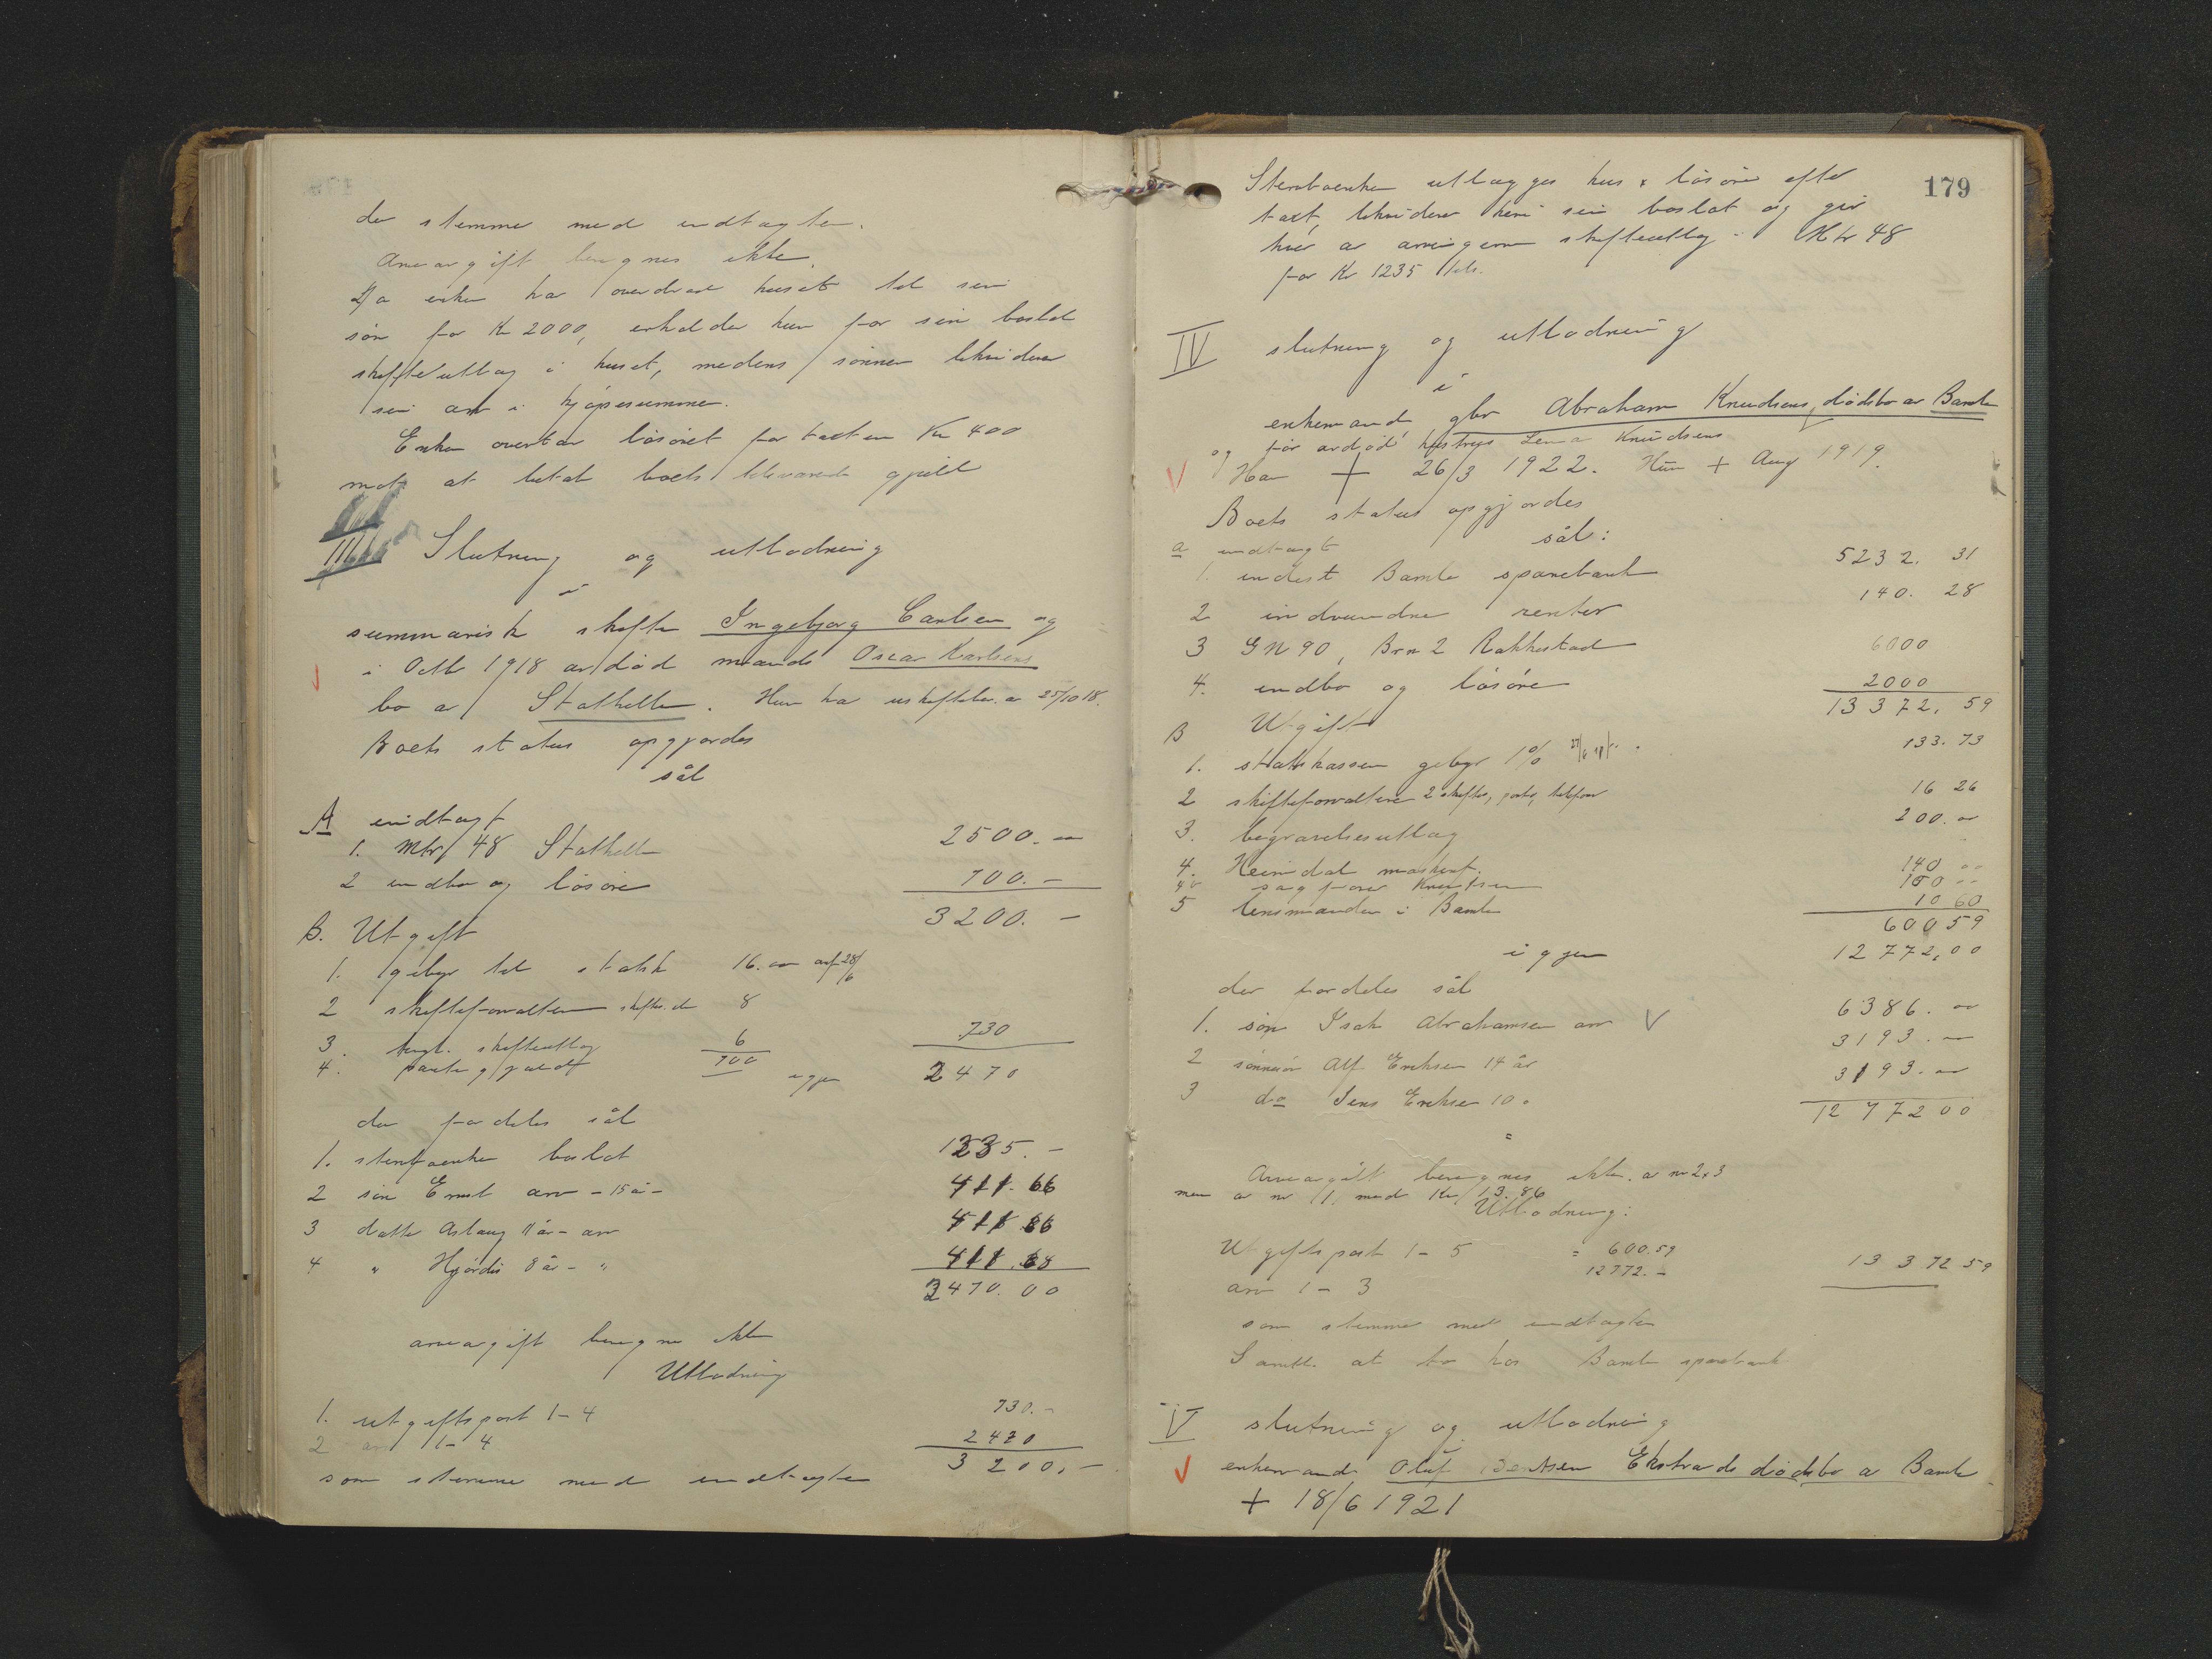 der stemmer med indtægten.
Arveavgift beregnes ikke.
Da enken har overdrat huset til sin
søn for Kr 2000, erholder hun for sin boslod
skifteutlæg i huset, medens sønnen likviderer
sin arv i kjøpesummen.
Enken overtar løsøret for taxten Kr 400
mot at betale boets tilsvarende gjæld
III Slutning og utlodning
i
summarisk skifte Ingebjørg Carlsen og
i Octb 1918 avdød mands Oscar Karlsens
bo av Stathelle. Hun har uskiftebev. av 25/10 18.
Boets status opgjordes
sål
A indtægt
1. Mtr 48 Stathelle 2500.00
2 indbo og løsøre 700.-
3200.-
B. Utgift
1. gebyr til statsk 16.00 28/6
2 skifteforvalteren skiftes. do 8
3. tingl. skifteutlæg 6
4. pantegjæld 700 730
igjen 2470
der fordeles sål
1. sterboenke boslod 1235.-
2 søn Ernst arv - 15 år - 411.66
3 datter Aslaug 11 år - arv 411 66
4 " Hjørdis 8 år - " 411.68
2470.00
arveavgift beregnes ikke
Utlodning
1. utgiftspost 1-4 730.-
2 arv 1-4 2470
3200.-
som stemmer med indtægten
179
Sterboenken utlægges hus & løsøre efter
taxt, likviderer heri sin boslod og gir
hver av arvingerne skifteutlæg i Mtr 48
for Kr 1235 tils.
IV slutning og utlodning
i
enkemand gbr Abraham Knudsens dødsbo av Bamle
og før avdød hustrus Lena Knudsens
Han + 26/3 1922. Hun + Aug 1919.
Boets status opgjordes
sål:
a indtægt
1. indest Bamle sparebank 5232.31
2 indvundne renter 140.28
3 GN 90, Brn 2 Rakkestad 6000
4. indbo og løsøre 2000
13372.59
B Utgift
1. statskassen gebyr 1% 133.73
2 skifteforvalteren 2 skiftes, porto, telefon 16 26
3. begravelsesutlæg 200.00
4. Heimdal 140 00
4b sagfører Knutsen 100 00
5 lensmanden i Bamle 10 60
600 59
igjen 12772,00
der fordeles sål
1. søn Isak Abrahamsen arv 6386.00
2 sønnesøn Alf Eriksen 14 år 3193.00
3 do Jens Eriksen 10 " 3193.00
12 772 00
Arveavgift beregnes ikke av nr 2 & 3
men av nr 1. med Kr 13.86
Utlodning:
Utgiftspost 1-5 = 600.59
arv 1-3 12772.- 13 372 59
som stemmer med indtægten
Samtl. at bo hos Bamle sparebank
V slutning og utlodning
enkemand Oluf Bentsen Ekstrands dødsbo av Bamle
+ 18/6 1921